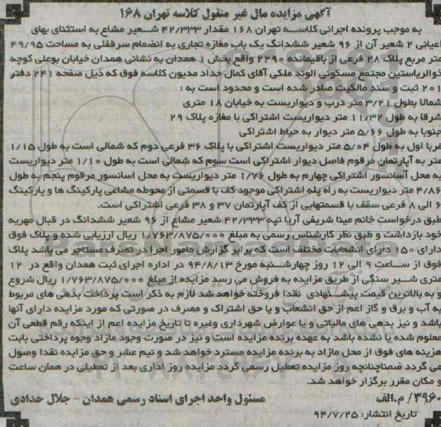 آگهی مزایده مال غیر منقول کلاسه تهران ۱۶۸
به موجب پرونده اجرائی کلاسه تهران ۱۶۸ مقدار ۴۲/۳۳۳ شعیر مشاع به استثنای بهای
اعیانی ۲ شعیر آن از ۹۶ شعیر ششدانگ یک باب مغازه تجاری به انضمام سرقفلی به مساحت ۴۹/۹۵
متر مربع پلاک ۲۸ فرعی از باقیمانده ۲۲۹۰ واقع بخش ۱ همدان به نشانی همدان خیابان بوعلی کوچه
ذوالریاستین مجتمع مسکونی الوند ملکی آقای کمال حداد مدیون کلاسه فوق که ذیل صفحه ۲۴۱ دفتر
۲۰۱ ثبت و سند مالکیت صادر شده است و محدود است به :
شمالا بطول ۳/۲۱ متر درب و دیواریست به خیابان ۱۸ متری
شرقا به طول ۱۱/۳۲ متر دیواریست اشتراکی با مغازه پلاک ۲۹
جنوبا به طول ۵/۶۶ متر دیوار به حیاط اشتراکی
غربا اول به طول ۵/۰۴ متر دیواریست اشتراکی با پلاک ۳۶ فرعی دوم که شمالی است به طول ۱/۱۵
متر به آپارتمان مرقوم فاصل دیوار اشتراکی است سوم که شمالی است به طول ۱/۱۰ متر دیواریست
به محل آسانسور اشتراکی چهارم به طول ۱/۷۶ متر دیواریست به محل آسانسور مرقوم پنجم به طول
۴/۸۶ متر دیواریست به راه پله اشتراکی موجود کف با قسمتی از محوطه مشاعی پارکینگ ها و پارکینگ
۶ الی ۸ فرعی سقف با قسمتهایی از کف آپارتمان ۳۷ و ۳۸ فرعی اشتراکی است.
طبق درخواست خانم مینا شریفی آریا تپه ۴۲/۳۳۳ شعیر مشاع از ۹۶ شعیر ششدانگ در قبال مهریه
خود بازداشت و طبق نظر کارشناس رسمی به مبلغ ۱/۷۶۳/۸۷۵/۰۰۰ ریال ارزیابی شده و پلاک فوق
دارای ۱۵۰ دارای انشعابات مختلف است که برابر گزارش مامور اجرا در تصرف مستاجر می باشد پلاک
فوق از ساعت ۹ الی ۱۲ روز چهارشنبه مورخ ۹۴/۸/۱۳ در اداره اجرای ثبت همدان واقع در ۱۲
متری شیر سنگی از طریق مزایده به فروش می رسد مزایده از مبلغ ۱/۷۶۳/۸۷۵/۰۰۰ ریال شروع
و به بالاترین قیمت پیشنهادی نقدا فروخته خواهد شد لازم به ذکر است پرداخت بدهی های مربوط
به آب و برق و گاز اعم از حق انشعاب و یا حق اشتراک و مصرف در صورتی که مورد مزایده دارای آنها
باشد و نیز بدهی های مالیاتی و یا عوارض شهرداری وغیره تا تاریخ مزایده اعم از اینکه رقم قطعی آن
معلوم شده یا نشده باشد به عهده برنده مزایده است و نیز در صورت وجود مازاد وجوه پرداختی بابت
هزینه های فوق از محل مازاد به برنده مزایده مسترد خواهد شد و نیم عشر و حق مزایده نقدا وصول
می گردد ضمناچنانچه روز مزایده تعطیل رسمی گردد مزایده روز اداری بعد از تعطیلی در همان ساعت
و مکان مقرر برگزار خواهد شد.
۳۹۶۰/ م.الف مسئول واحد اجرای اسناد رسمی همدان - جلال حدادی
تاریخ انتشار: ۹۴/۷/۲۵